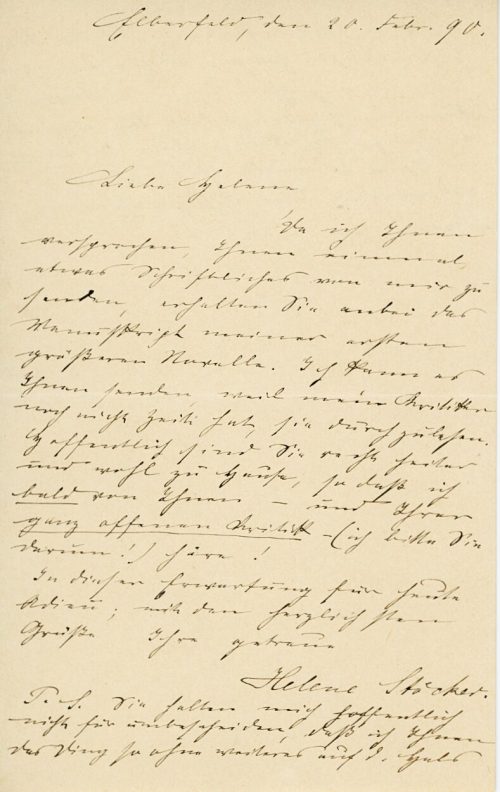 Elberfeld, den 20. Febr. 90.
Liebe Helene
Da ich Ihnen
versprochen, Ihnen einmal
etwas Schriftliches von mir zu
senden, erhalten Sie anbei das
Manuskript meiner ersten
größeren Novelle. Ich kann es
Ihnen senden, weil mein Kritiker
noch nicht Zeit hat, sie durchzulesen.
Hoffentlich sind Sie recht heiter
und wohl zu Hause, so daß ich
bald von Ihnen – und Ihrer
ganz offenen Kritik – (ich bitte Sie
darum!) höre!
In dieser Erwartung für heute
Adieu; mit den herzlichsten
Grüße Ihre getreue
Helene Stöcker.
P.S. Sie halten mich hoffentlich
nicht für unbescheiden, daß ich Ihnen
das Ding so ohne weiteres auf d. Hals